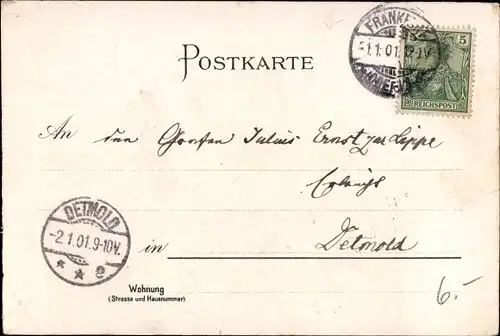 FRANKE
5
1.1.01.12-1V.
REICHSPOST
POSTKARTE
An den Grafen Julius Ernst zur Lippe
Erlaucht
DETMOLD
-2.1.01.9-10V.
* * e
in Detmold
Wohnung
(Strasse und Hausnummer)
6.-